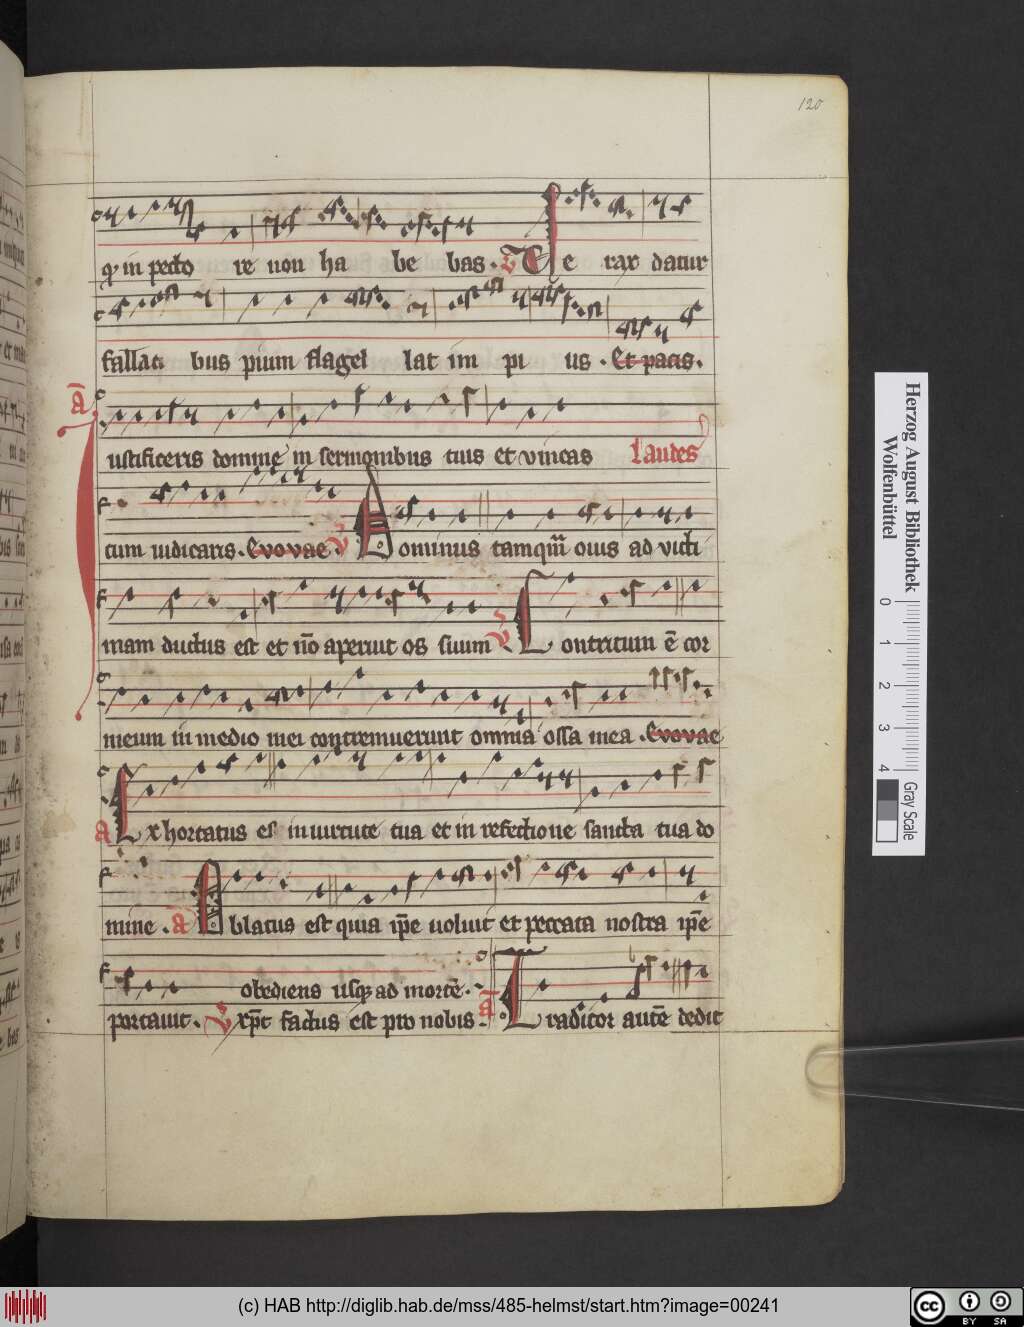 120
in pecto re non ha be bas . V Te rax datur
fallaci bus pium flagel lat im pi us . Et pacis .
a
ustificeris domine in sermonibus tuis et vincas Laudes
cum iudicaris . Evovae . V Dominus tamqua ouis ad victi
mam ductus est et no aperuit os suum V Contritum e cor
meum in medio mei contremuerunt omnia ossa mea . Evovae
a Exhortatus es in uirtute tua et in refectione sancta tua do
mine . a Oblatus est quia ipe uoluit et peccata nostra ipe
obediens usq ad morte .
portauit . V xpc factus est pro nobis . a Traditor aute dedit
Herzog August Bibliothek
Wolfenbüttel
0 1 2 3 4
Gray Scale
(c) HAB http://diglib.hab.de/mss/485-helmst/start.htm?image=00241
cc BY SA